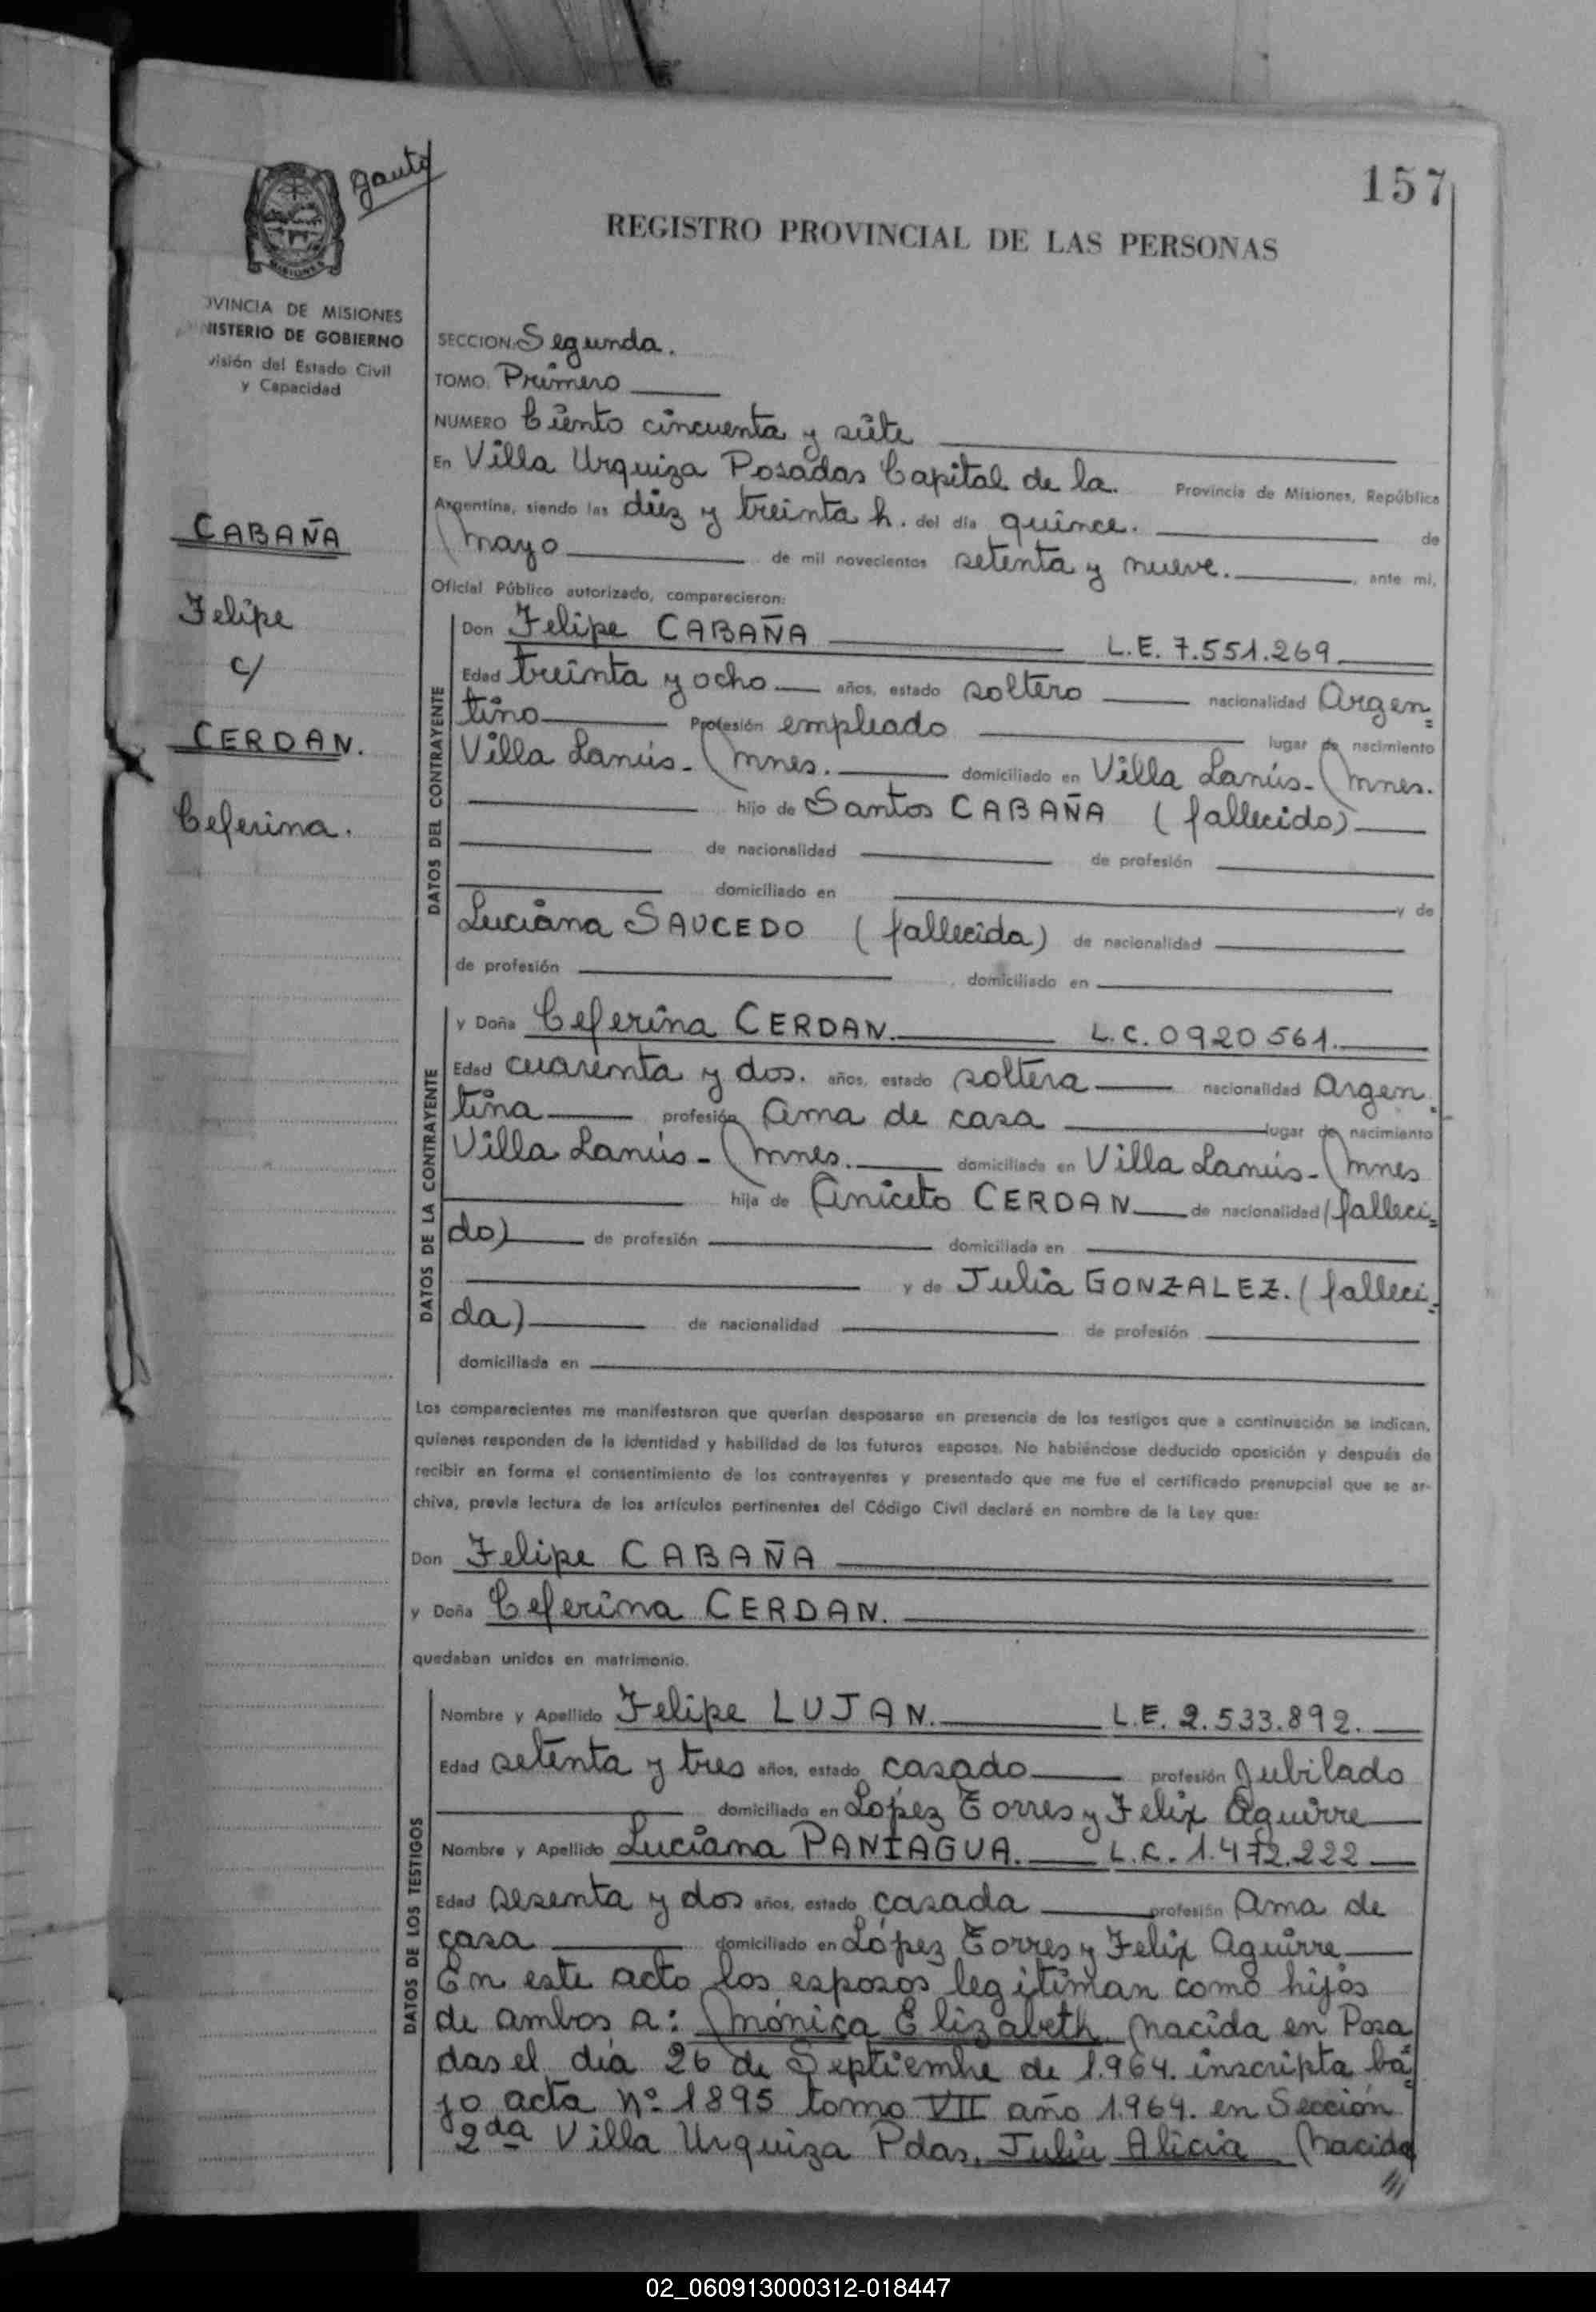 gauto
157
REGISTRO PROVINCIAL DE LAS PERSONAS
MISIONES
OVINCIA DE MISIONES
NISTERIO DE GOBIERNO
visión del Estado Civil
y Capacidad
SECCION: Segunda.
TOMO: Primero
NUMERO Ciento cincuenta y siete
En Villa Urquiza Posadas Capital de la. Provincia de Misiones, República
Argentina, siendo las diez y treinta h. del día quince. de
mayo de mil novecientos setenta y nueve. , ante mi,
Oficial Público autorizado, comparecieron:
CABAÑA
Felipe
c/
CERDAN.
Ceferina.
DATOS DEL CONTRAYENTE
Don Felipe CABAÑA L.E. 7.551.269
Edad treinta y ocho años, estado soltero nacionalidad Argen=
tino Profesión empleado lugar de nacimiento
Villa Lanús - Mnes. domiciliado en Villa Lanús - Mnes.
hijo de Santos CABAÑA (fallecido)
de nacionalidad de profesión
domiciliado en y de
Luciana SAUCEDO (fallecida) de nacionalidad
de profesión , domiciliado en
DATOS DE LA CONTRAYENTE
y Doña Ceferina CERDAN. L.C. 0920561.
Edad cuarenta y dos. años, estado soltera nacionalidad Argen=
tina profesión Ama de casa lugar de nacimiento
Villa Lanús - Mnes. domiciliada en Villa Lanús - Mnes
hija de Aniceto CERDAN de nacionalidad (falleci=
do) de profesión domiciliada en
y de Julia GONZALEZ. (falleci=
da) de nacionalidad de profesión
domiciliada en
Los comparecientes me manifestaron que querían desposarse en presencia de los testigos que a continuación se indican,
quienes responden de la identidad y habilidad de los futuros esposos. No habiéndose deducido oposición y después de
recibir en forma el consentimiento de los contrayentes y presentado que me fue el certificado prenupcial que se ar-
chiva, previa lectura de los artículos pertinentes del Código Civil declaré en nombre de la Ley que:
Don Felipe CABAÑA
y Doña Ceferina CERDAN.
quedaban unidos en matrimonio.
DATOS DE LOS TESTIGOS
Nombre y Apellido Felipe LUJAN. L.E. 2.533.892.
Edad setenta y tres años, estado casado profesión Jubilado
domiciliado en López Torres y Felix Aguirre
Nombre y Apellido Luciana PANIAGUA. L.C. 1.472.222
Edad sesenta y dos años, estado casada profesión Ama de
casa domiciliado en López Torres y Felix Aguirre
En este acto los esposos legitiman como hijos
de ambos a: Mónica Elizabeth nacida en Posa
das el día 26 de Septiembre de 1.964. inscripta ba=
jo acta nº 1895 tomo VII año 1.964. en Sección
2da Villa Urquiza Pdas, Julia Alicia nacida
///
02_060913000312-018447